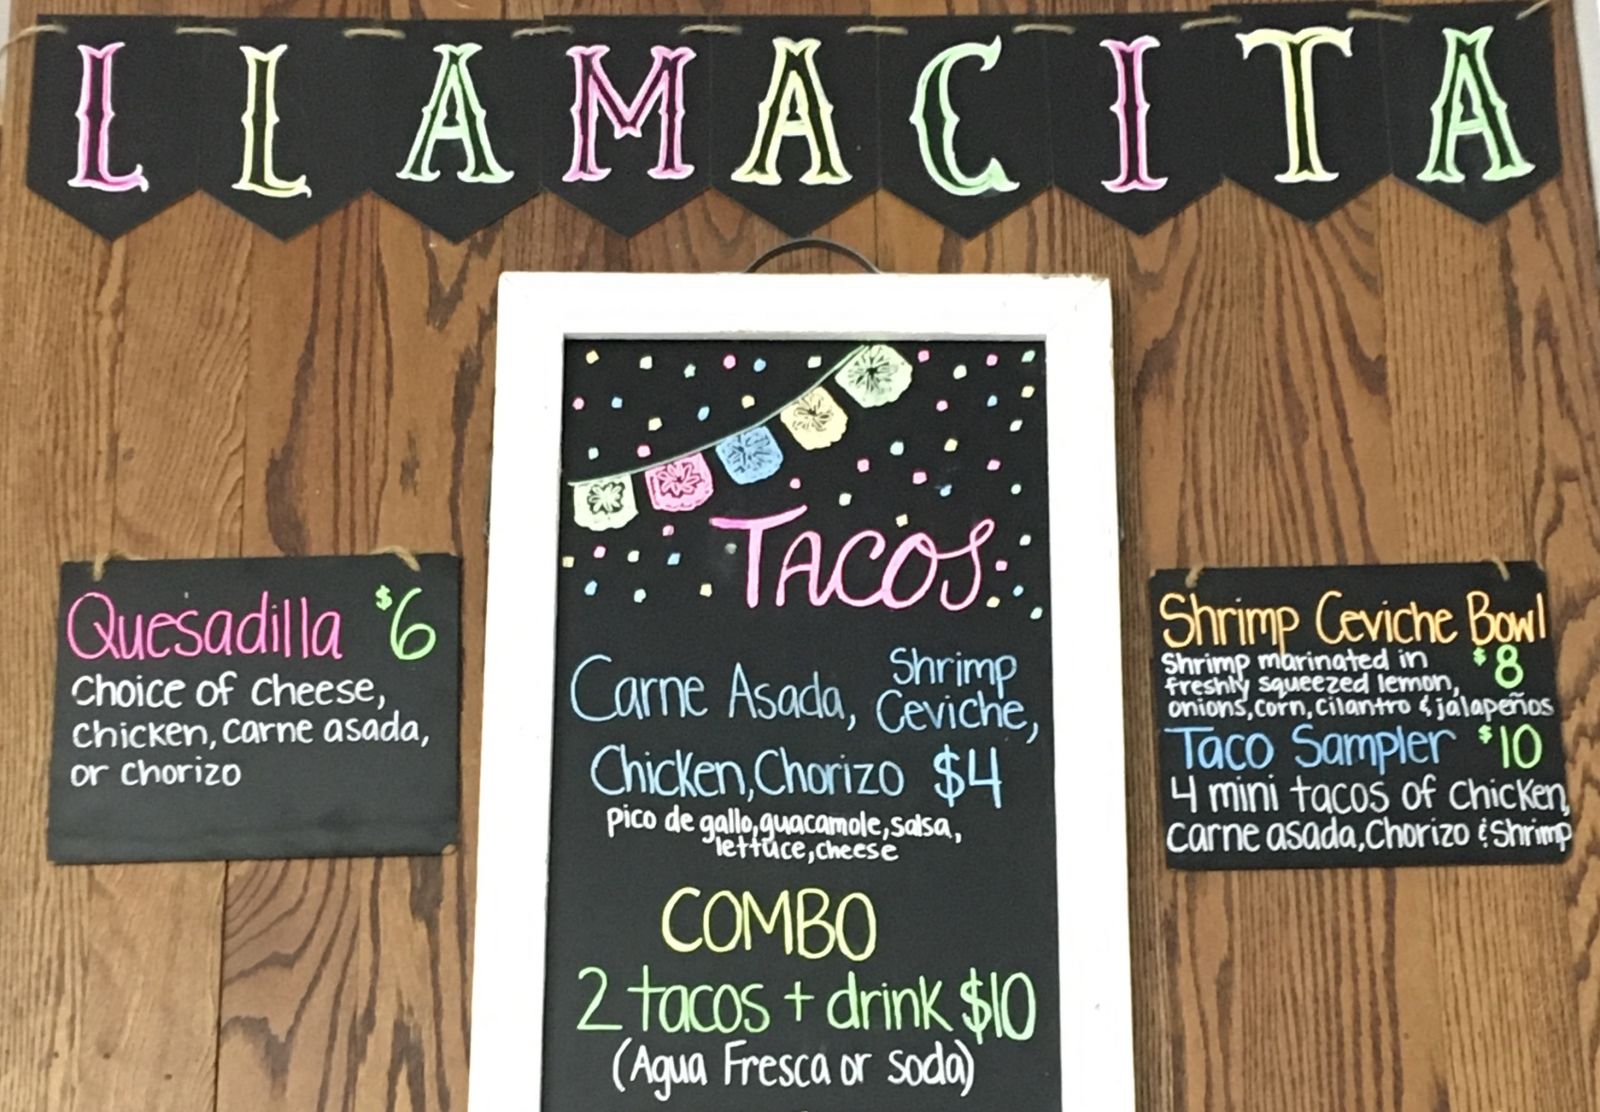 LLAMACITA
Quesadilla $6
Choice of Cheese,
Chicken, Carne asada,
or Chorizo
TACOS
Carne Asada, Shrimp Ceviche,
Chicken, Chorizo $4
pico de gallo, guacamole, salsa,
lettuce, cheese
COMBO
2 tacos + drink $10
(Agua Fresca or soda)
Shrimp Ceviche Bowl
Shrimp marinated in $8
freshly squeezed lemon,
onions, corn, cilantro & jalapeños
Taco Sampler $10
4 mini tacos of Chicken,
Carne asada, Chorizo & Shrimp